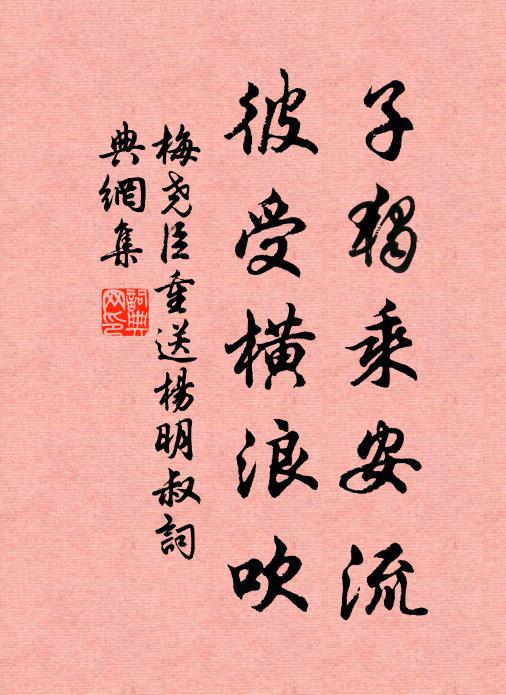 子独乘安流
彼受横浪吹
梅尧臣重送楊明叔詞
典網集
詞典网印